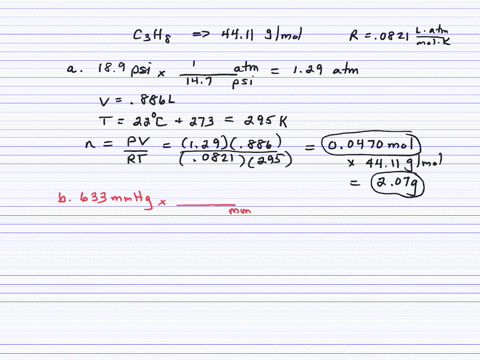 C3H8 => 44.11 g/mol R = .0821 L.atm/mol.K
a. 18.9 psi x 1 atm/14.7 psi = 1.29 atm
V = .886L
T = 22°C + 273 = 295 K
n = PV/RT = (1.29)(.886)/(.0821)(295) = 0.0470 mol
x 44.11 g/mol
= 2.07g
b. 633 mmHg x ___/mm